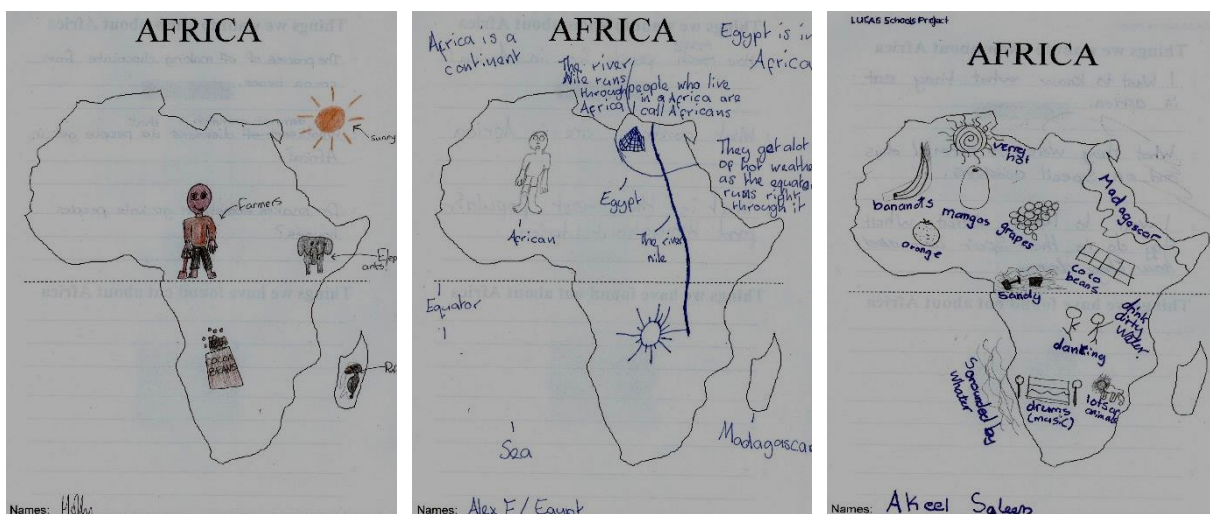 AFRICA
sunny
Farmers
Elep
ants
COCOA
BEANS
Names:
AFRICA
Africa is a
continent
Egypt is in
Africa
The river
Nile runs
through
Africa
people who live
in a Africa are
call Africans
They get alot
of hot weathe
as the equator
runs right
through it
Egypt
African
The river
nile
Equator
Sea
Madagascar
Names: Alex F / Egypt
LUCAS Schools Project
AFRICA
verrey
hot
bananars
mangos
grapes
orange
Madagascar
coco
beans
sandy
drink
dirty
water
danking
Sorrounded by
whater
drums
(music)
lots of
animals
Names: Akeel Saleem